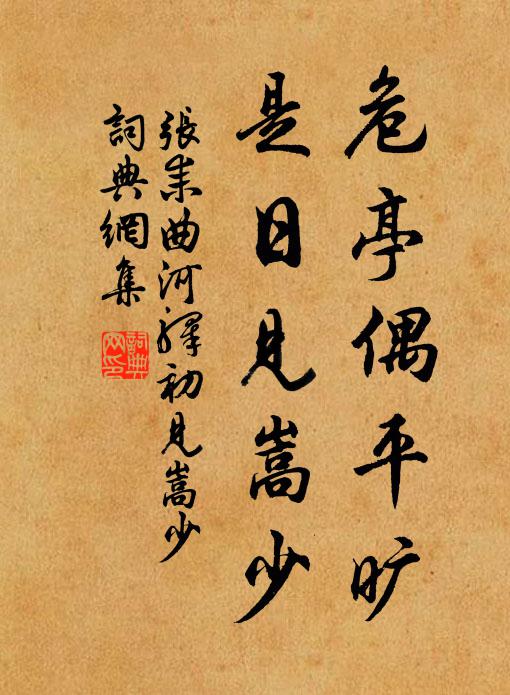 危亭偶平旷
是日見嵩少
張耒曲河驛初見嵩少
詞典網集
詞典网印